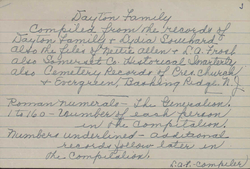 3
Dayton Family
Compiled from the records of
Dayton Family & Lydia Bouchard
Also the files of Nettie Allen & D.A. Frost
also Somerset Co. Historical Quarterly
also Cemetery Records of Cres Church
& Evergreen, Basking Ridge N.J.
Roman numerals - The Generation.
1 to 160 - number of each person
in the compilation.
Numbers underlined - additional
records follow later in
the Compilation.
compiler